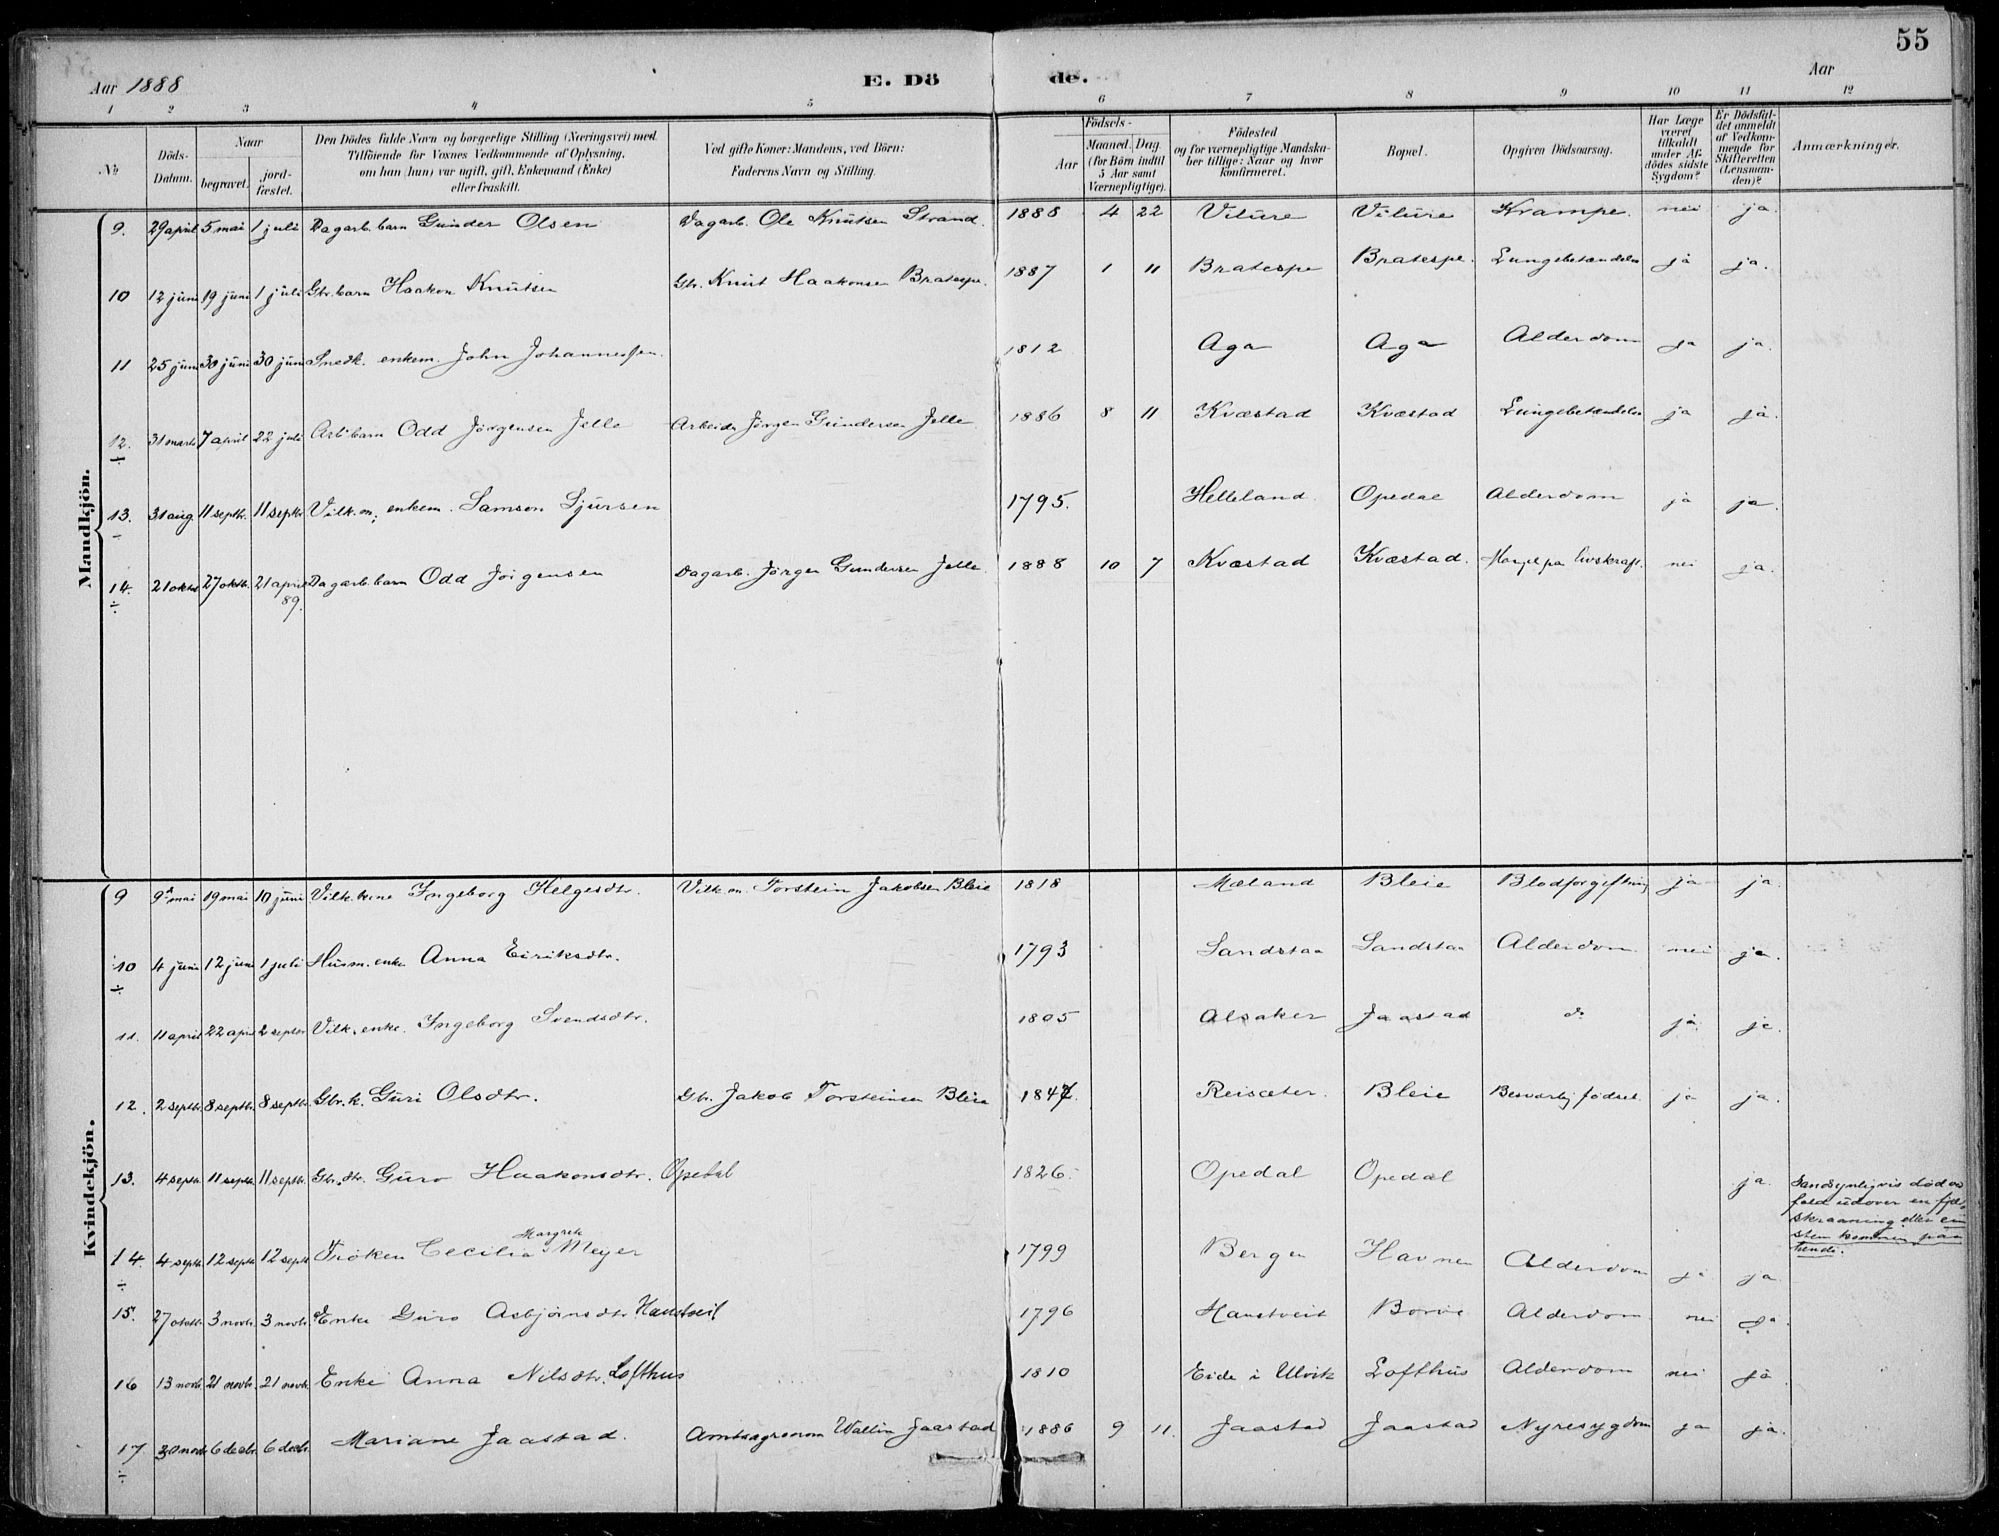 55
Aar 1888 E. Dö de. Aar
1 2 3 4 5 6 7 8 9 10 11 12
No Döds-Datum. Naar begravet. jordfæstet. Den Dödes fulde Navn og borgerlige Stilling (Næringsvei) med Tilföiende for Voxnes Vedkommende af Oplysning, om han (hun) var ugift, gift, Enkemand (Enke) eller fraskilt. Ved gifte Koner: Mandens, ved Börn: Faderens Navn og Stilling. Födsels- Aar Maaned. Dag. (for Börn indtil 5 Aar samt Værnepligtige). Födested og for værnepligtige Mandskaber tillige: Naar og hvor konfirmeret. Bopæl. Opgiven Dödsaarsag. Har Læge været tilkaldt under Afdödes sidste Sygdom? Er Dödsfaldet anmeldt af Vedkommende for Skifteretten (Lensmanden)? Anmærkninger.
Mandkjön.
9. 29 april 5 mai 1 juli Dagarb. barn Gunder Olsen Dagarb. Ole Knutsen Strand. 1888 4 22 Vilure Vilure Krampe. nei ja.
10 12 juni 19 juni 1 juli Gbr. barn Haakon Knutsen Gbr. Knut Haakonsen Bratespe. 1887 1 11 Bratespe Bratespe. Lungebetændelse ja ja.
11 25 juni 30 juni 30 juni Snedk. enkem. John Johannessen. 1812 Aga Aga Alderdom ja ja.
12. ÷ 31 marts 7 april 22 juli Arb. barn Odd Jørgensen Jelle Arbeider Jørgen Gundersen Jelle 1886 8 11 Kvæstad Kvæstad Lungebetændelse ja ja.
13. 31 aug. 11 septbr. 11 septbr Vilk.m., enkem. Samson Sjursen 1795. Helleland. Opedal Alderdom ja ja.
14. ÷ 21 oktbr 27 oktbr. 21 april 89. Dagarb. barn Odd Jørgensen Dagarb. Jørgen Gundersen Jelle. 1888 10 7 Kvæstad Kvæstad. Mangel paa livskraft. nei ja.
Kvindekjön.
9 9 mai 19 mai 10 juni Vilk. kone Ingeborg Helgesdtr. Vilk.m. Torstein Jakobsen Bleie 1818 Mæland Bleie Blodforgiftning ja ja.
10 ÷ 4 juni 12 juni 1 juli Husm. enke Anna Eiriksdtr. 1793 Sandstaa Sandstaa Alderdom nei ja.
11. 11 april 22 april 2 septbr. Vilk. enke. Ingeborg Svendsdtr. 1805 Alsaker Jaastad do ja ja.
12. 2 septbr. 8 septbr. 8 septbr. Gbr. k. Guri Olsdtr. Gbr. Jakob Torsteinsen Bleie Reisæter. Bleie Besværlig fødsel. ja ja.
13. 4 septbr. 11 septbr. 11 septbr. Gbr. dtr. Guro Haakonsdtr. Opedal 1826. Opedal Opedal ja. Sandsynligvis død ved fald udover en fjeldskraaning eller en sten kommen paa hende.
14. ÷ 4 septbr. 12 septbr. 12 septbr Frøken Cecilia Margrete Meyer 1799 Bergen Havnen Alderdom ja ja
15. 27 oktbr. 3 novbr. 3 novbr. Enke Guro Asbjørnsdtr. Haustveit 1796 Haustveit Borve Alderdom nei ja.
16 13 novbr. 21 novbr. 21 novbr. Enke Anna Nilsdtr. Lofthus 1810 Eide i Ulvik Lofthus Alderdom nei ja
17. ÷ 30 novbr 6 decbr. 6 decbr. Mariane Jaastad. Amtsagronom Wallin Jaastad 1886 9 11. Jaastad Jaastad Nyresygdom ja ja.